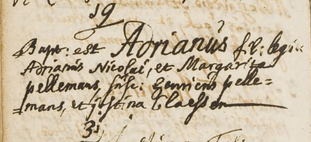 19
Bapt: est Adrianus f. l: legit:
Adriani Nicolai, et Margarita
pellemans, susc: Henricus pelle=
mans, et justina Claessen
3i